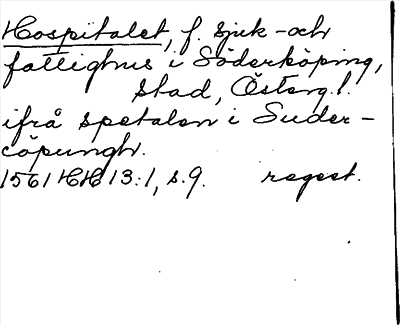 Hospitalet, f. sjuk-och
fattighus i Söderköping,
stad, Österg.l.
ifrå spetalen i Suder-
cöpungh.
1561 HH 13:1, s. 9. regest.